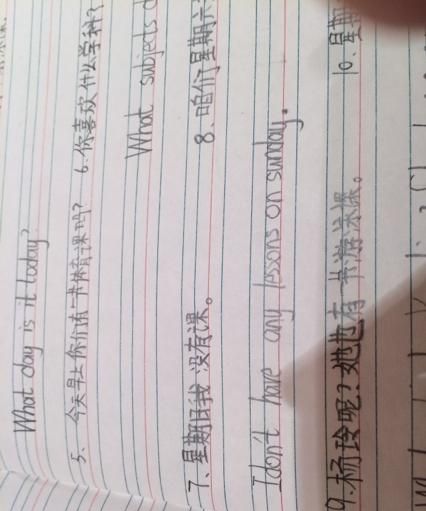 What day is it today?
5、今天早上你们有一节体育课吗? 6.你喜欢什么学科?
What subjects d
7、星期日我没有课。 8、咱们星期六
I don't have any lessons on sunday.
9.杨玲呢?她也有一节游泳课。 10、星期